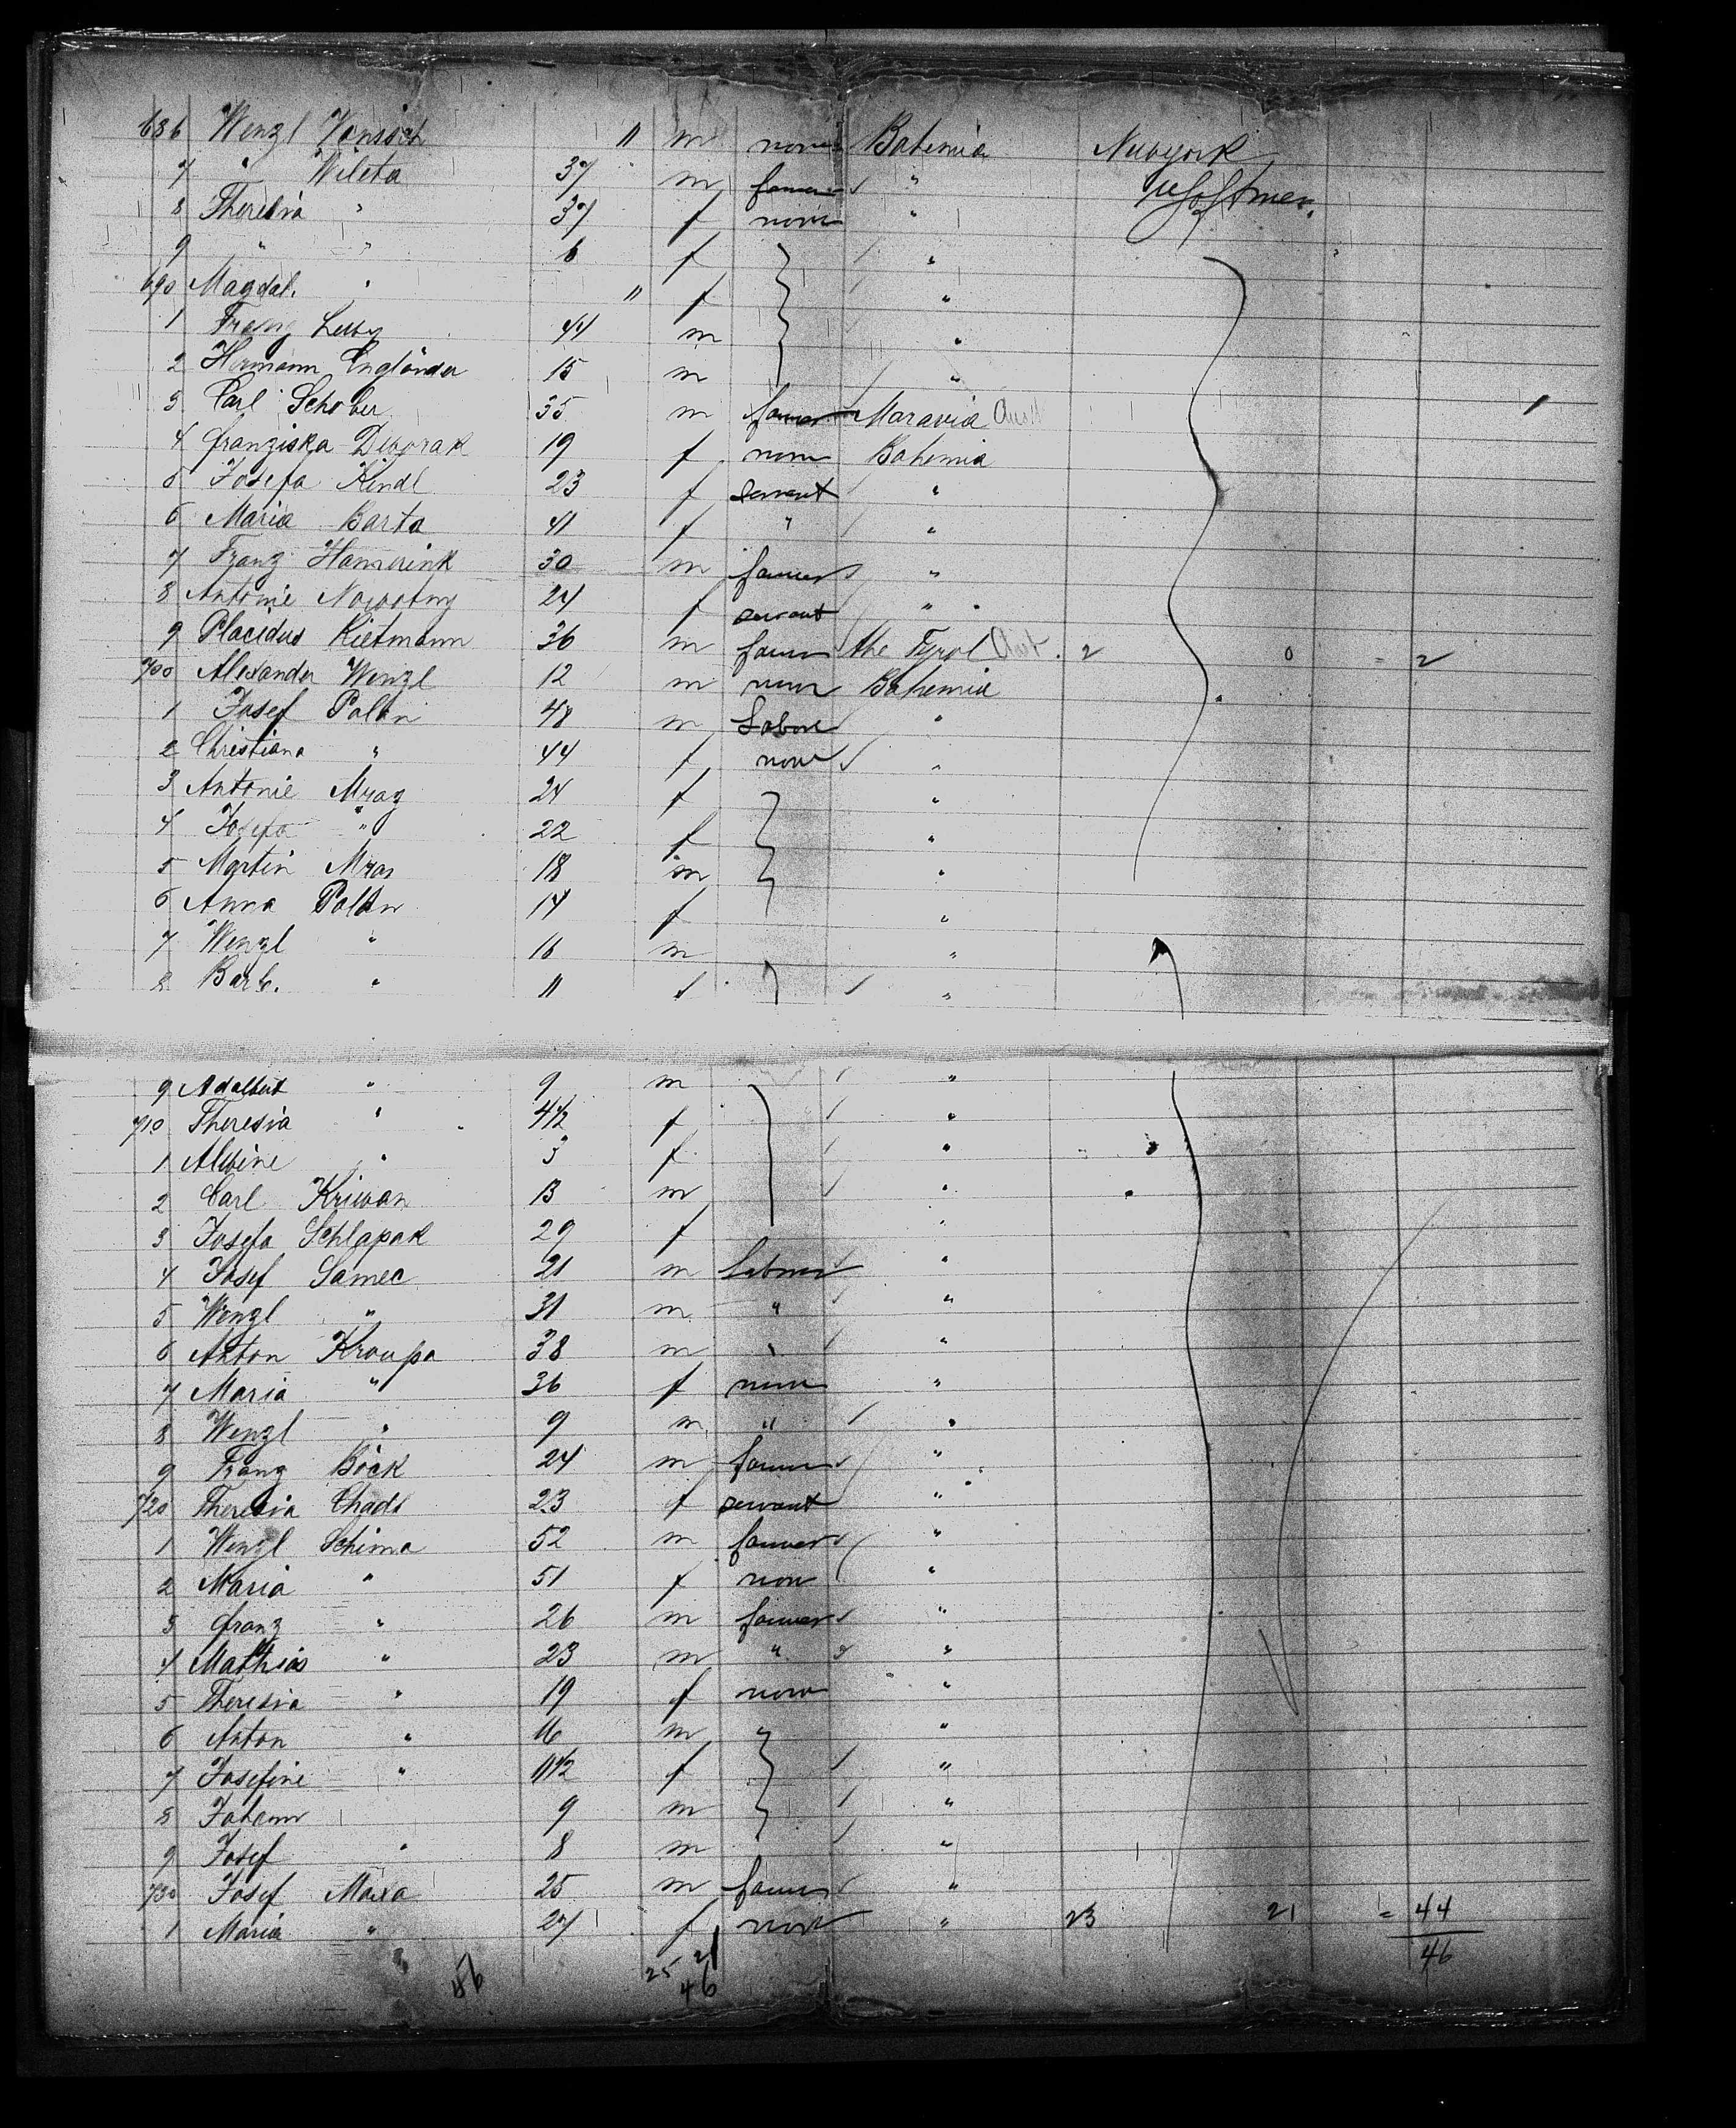 686 Wenzl " m none Bohemia Newyork
7 " Wileta 37 m farmer "
8 Theresia " 37 f none "
9 " " 6 f "
690 Magdal. " " f "
1 Franz 44 m "
2 Hermann Engländer 15 m "
3 Carl Schober 35 m farmer Maravia Aust
4 Franziska Dworak 19 f none Bohemia
5 Josefa Kindl 23 f servant "
6 Maria Barta 41 f " "
7 Franz 30 m farmer "
8 Antonie Nowotny 24 f servant "
9 Placidus Rietmann 36 m farmer the Tyrol Aust. 2 0 = 2
700 Alexander Wenzl 12 m none Bohemia
1 Josef Polan 48 m Labore "
2 Christiana " 44 f none "
3 Antonie Mraz 24 f "
4 Josefa " 22 f "
5 Martin Mras 18 m "
6 Anna Polan 14 f "
7 Wenzl " 16 m "
8 Barb. " 11 f "
9 Adalbert " 9 m "
710 Theresia " 4 1/2 f "
1 Albine " 3 f "
2 Carl Kriwan 13 m "
3 Josefa Schlapak 29 f "
4 Josef Samec 21 m Labour "
5 Wenzl " 31 m " "
6 Anton Kroupa 38 m " "
7 Maria " 36 f none "
8 Wenzl " 9 m " "
9 Franz Böck 24 m farmer "
720 Theresia Chadt 23 f servant "
1 Wenzl Schima 52 m farmer "
2 Maria " 51 f none "
3 Franz " 26 m farmer "
4 Mathias " 23 m " "
5 Theresia " 19 f none "
6 Anton " 16 m "
7 Josefine " 11 1/2 f "
8 Johann 9 m "
9 Josef " 8 m "
730 Josef Maxa 25 m farmer "
1 Maria " 27 f none " 23 21 = 44
46
25 21
46 46